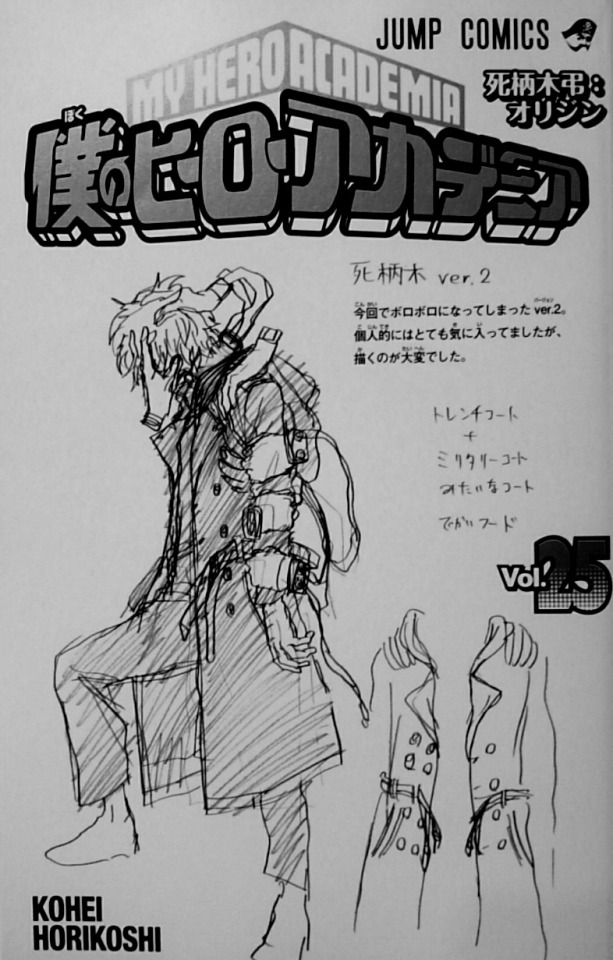 JUMP COMICS
MY HERO ACADEMIA
死柄木弔：
オリジン
僕のヒーローアカデミア
ぼく
死柄木 ver.2
今回でボロボロになってしまったver.2。
個人的にはとても気に入ってましたが、
描くのが大変でした。
トレンチコート
+
ミリタリーコート
みたいなコート
でかいフード
Vol.25
KOHEI
HORIKOSHI